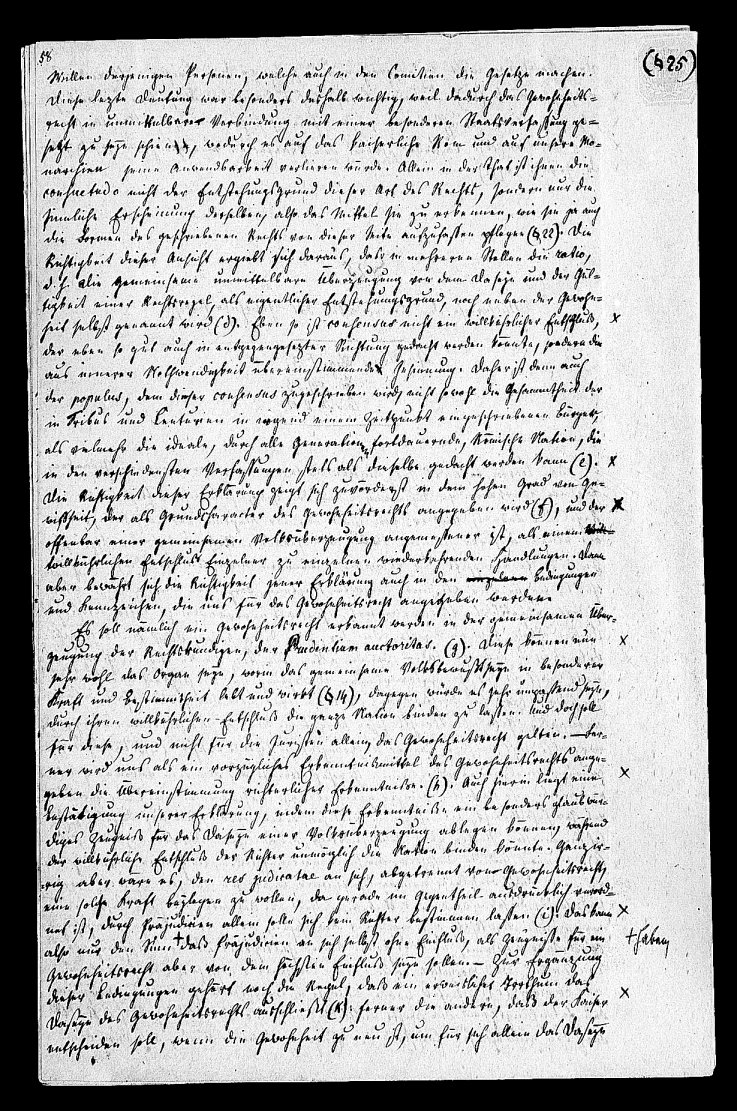 58
(§ 25)
Willen derjenigen Personen, welche auch in den Comitien die Gesetze machen.
Diese letzte Deutung war besonders deshalb wichtig, weil dadurch das Gewohnheits-
recht in unmittelbare Verbindung mit einer besonderen Staatsverfassung ge-
setzt zu seyn schien, wodurch es auf das kaiserliche Rom und auf unsere Mo-
narchien seine Anwendbarkeit verlieren würde. Allein in der That ist ihnen die
consuetudo nicht der Entstehungsgrund dieser Art des Rechts, sondern nur die
sinnliche Erscheinung derselben, also das Mittel sie zu erkennen, wie sie ja auch
die Formen des geschriebenen Rechts von dieser Seite aufzufassen pflegen (§ 22). Die
Richtigkeit dieser Ansicht ergiebt sich daraus, daß in mehreren Stellen die ratio,
d. h. die gemeinsame unmittelbare Überzeugung von dem Daseyn und der Gül-
tigkeit einer Rechtsregel, als eigentlicher Entstehungsgrund, noch neben der Gewohn-
heit selbst genannt wird (d). Eben so ist consensus nicht ein willkührlicher Entschluß, x
der eben so gut auch in entgegengesetzter Richtung gedacht werden könnte, sondern die
aus innerer Nothwendigkeit übereinstimmende Gesinnung. Daher ist denn auch
der populus, dem dieser consensus zugeschrieben wird, nicht sowohl die Gesammtheit der
in Tribus und Centurien in irgend einem Zeitpunkt eingeschriebenen Bürger,
als vielmehr die ideale, durch alle Generationen fortdauernde, Römische Nation, die
in den verschiedensten Verfassungen stets als dieselbe gedacht werden kann (e). x
Die Richtigkeit dieser Erklärung zeigt sich zuvörderst in dem hohen Grad von Ge-
wißheit, der als Grundcharacter des Gewohnheitsrechts angegeben wird (f), und der x
offenbar einer gemeinsamen Volksüberzeugung angemessener ist, als einem
willkührlichen Entschluß Einzelner zu einzelnen wiederkehrenden Handlungen. Dann
aber bewährt sich die Richtigkeit jener Erklärung auch in den Bedingungen
und Kennzeichen, die uns für das Gewohnheitsrecht angegeben werden.
Es soll nämlich ein Gewohnheitsrecht erkannt werden in der gemeinsamen Über-
zeugung der Rechtskundigen, der Prudentium auctoritas. (g). Diese können nun x
sehr wohl das Organ seyn, worin das gemeinsame Volksbewußtseyn in besonderer
Kraft und Bestimmtheit lebt und wirkt (§ 14), dagegen würde es sehr unpassend seyn,
durch ihren willkührlichen Entschluß die ganze Nation binden zu lassen. Und doch soll
für diese, und nicht für die Juristen allein, das Gewohnheitsrecht gelten. – Fer-
ner wird uns als ein vorzügliches Erkenntnißmittel des Gewohnheitsrechts ange-
geben die Übereinstimmung richterlicher Erkenntnisse. (h). Auch hierin liegt eine x
Bestätigung unserer Erklärung, indem diese Erkenntnisse ein besonders glaubwür-
diges Zeugniß für das Daseyn einer Volksüberzeugung ablegen können, während
der willkührliche Entschluß der Richter unmöglich die Nation binden könnte. Ganz ir-
rig aber wäre es, den res judicatae an sich, abgetrennt vom Gewohnheitsrecht,
eine solche Kraft beylegen zu wollen, da gerade im Gegentheil ausdrücklich verord-
net ist, durch Präjudicien allein solle sich kein Richter bestimmen lassen (i). Das kann x
also nur den Sinn + daß Präjudicien an sich selbst ohne Einfluß, als Zeugnisse für ein
+ haben,
Gewohnheitsrecht aber von dem höchsten Einfluß seyn sollen. – Zur Ergänzung
dieser Bedingungen gehört noch die Regel, daß ein erweislicher Irrthum das
Daseyn des Gewohnheitsrechts ausschließt (k): ferner die andere, daß der Kaiser x
entscheiden soll, wenn die Gewohnheit zu neu ist, um für sich allein das Daseyn